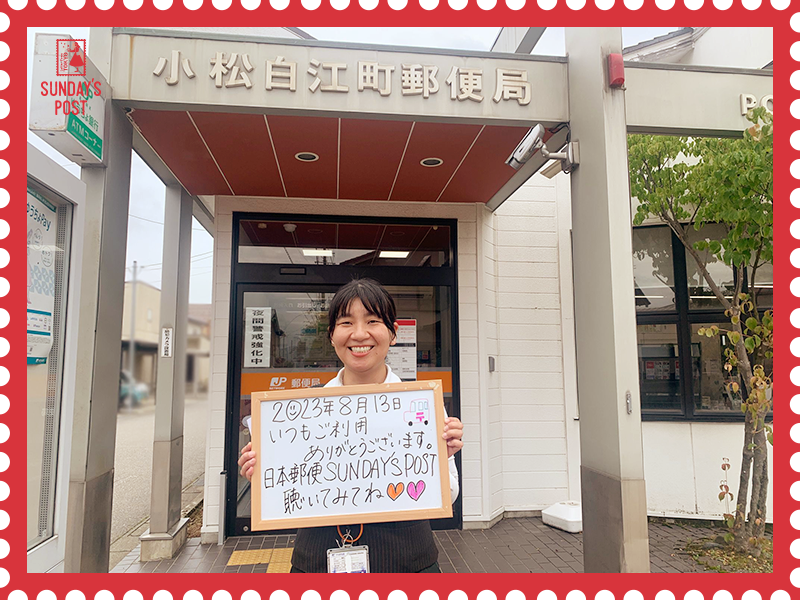 SUNDAY'S
POST
小松白江町郵便局
ATMコーナー
夜間警戒強化中
JP 郵便局
2023年8月13日
いつもご利用
ありがとうございます。
日本郵便SUNDAY'S POST
聴いてみてね